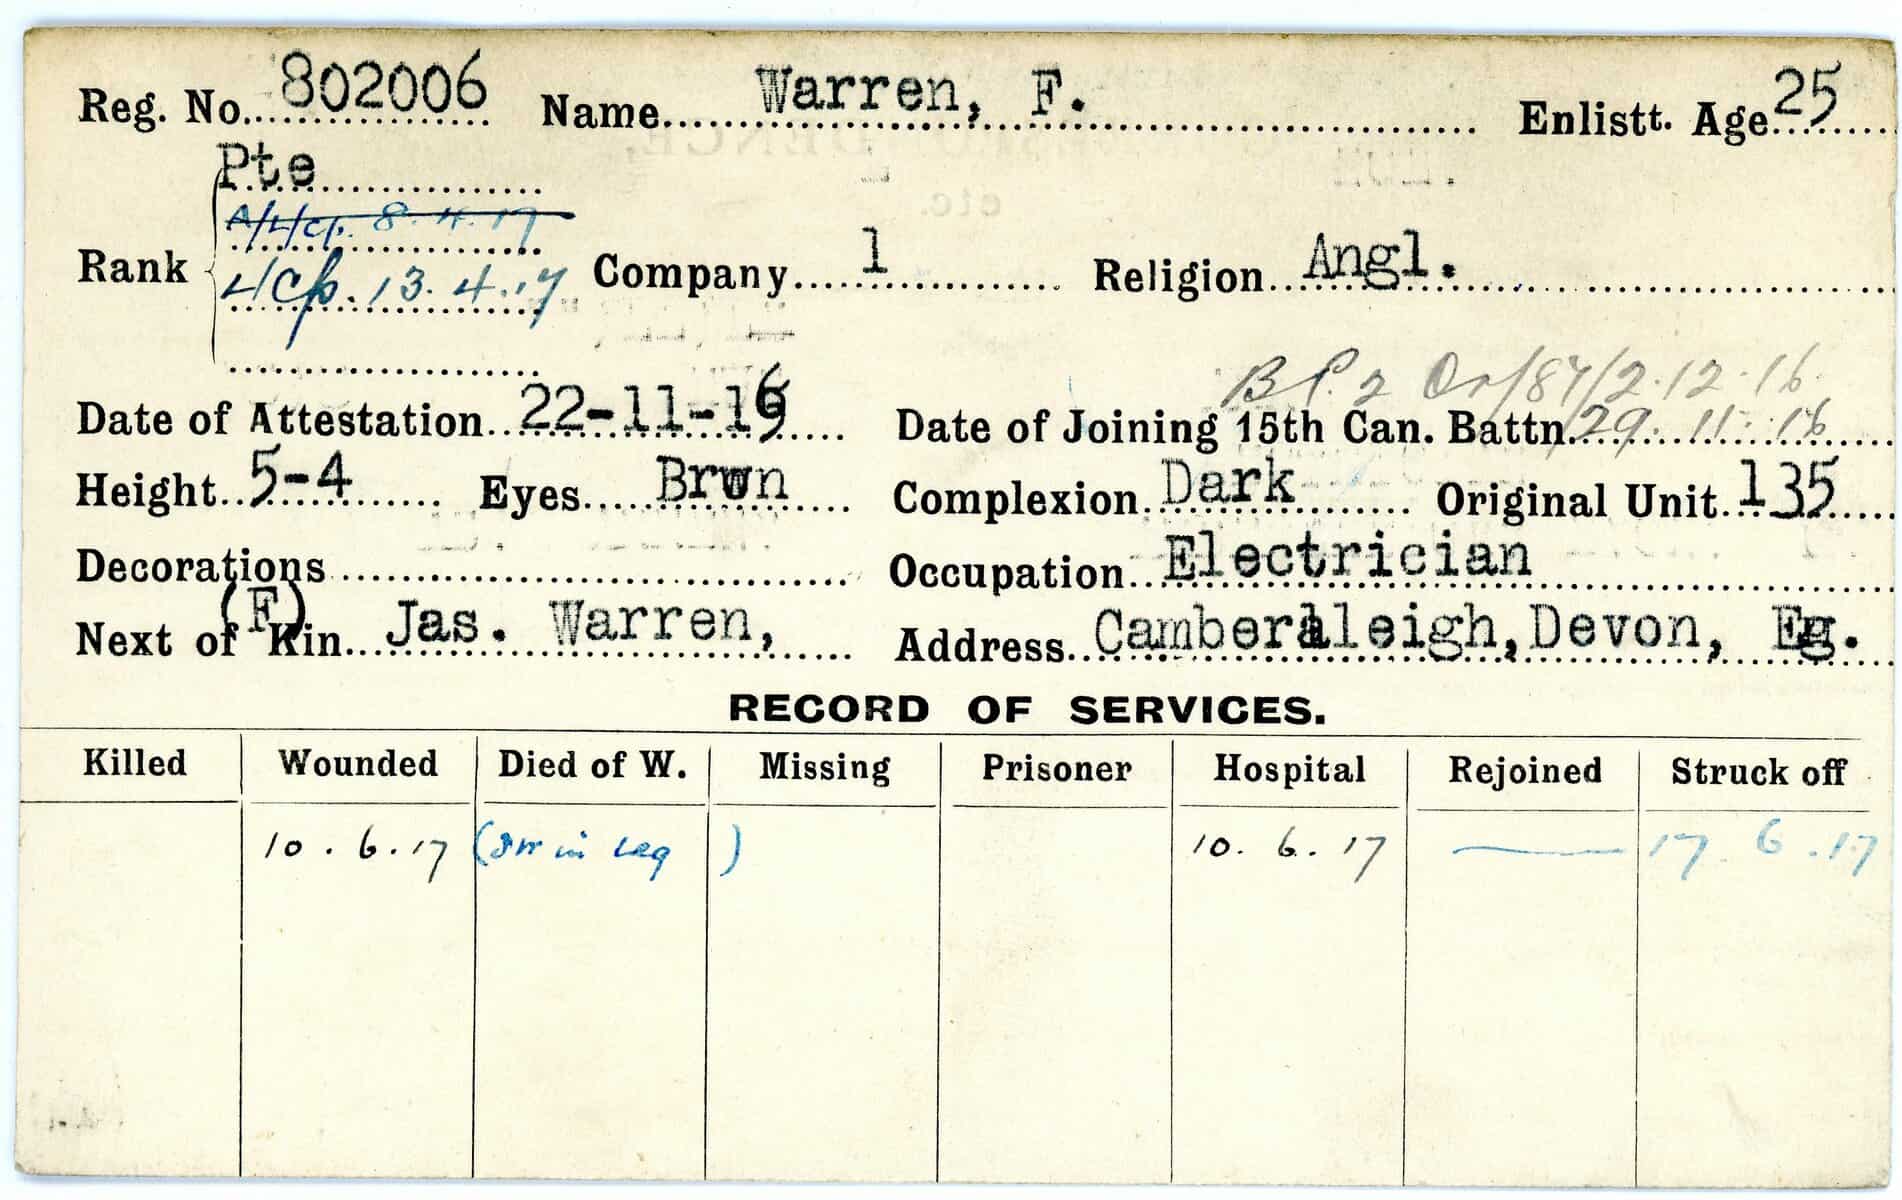 Reg. No. 802006 Name Warren, F. Enlistt. Age 25
Pte
A/L/Cp. 8.4.17
Rank L/Cp. 13.4.17 Company 1 Religion Angl.
2.12.16
Date of Attestation 22-11-16 Date of Joining 15th Can. Battn. 29.11.16
Height 5-4 Eyes Brwn Complexion Dark Original Unit 135
Decorations Occupation Electrician
(F)
Next of Kin Jas. Warren, Address Camberaleigh, Devon, Eg.
RECORD OF SERVICES.
Killed Wounded Died of W. Missing Prisoner Hospital Rejoined Struck off
10.6.17 ( in leg ) 10.6.17 — 17.6.17